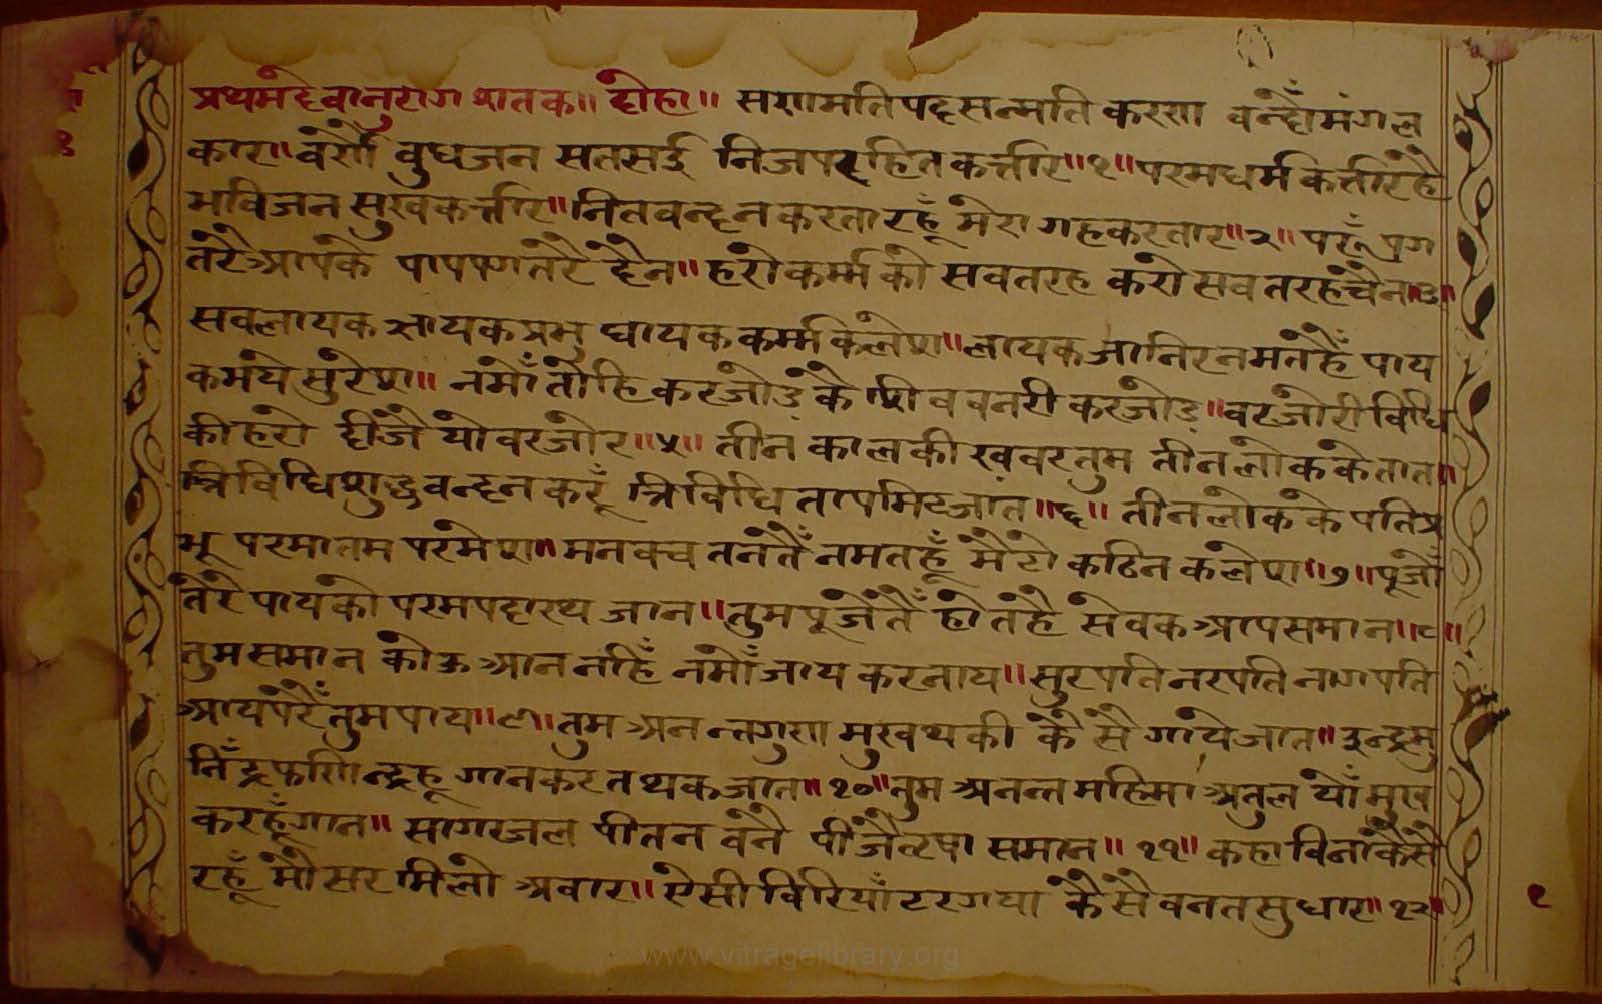 प्रथमदेवानुराग शतक॥ दोहा॥ सरणमतिपदसन्मति करण वन्दौँमंगल
कार॥वरणौँ वुधजन सतसई निजपरहितकर्त्तार॥१॥परमधर्मकर्त्तारहै
भविजन सुखकर्त्तार॥नितवन्दनकरतारहूँ मेरा गहकरतार॥२॥ परूँपग
तरैआपके पापपगतरै दैन॥हरोकर्म्मकौ सवतरह करोसवतरहचैन॥३॥
सवलायक ज्ञायकप्रभू घायककर्म्मकलेश॥लायकजानिरनमतहैँ पाय
कभयेसुरेश॥ नमौँतोहिकरजोडके शिववनरीकरजोड॥वरजोरीविधि
कीहरो दीजै योवरजोर॥५॥ तीनकालकीखवरतुम तीनलोककेतात॥
त्रिविधिशुद्धवन्दनकरूँ त्रिविधि तापमिटजात॥६॥ तीनलोककेपतिप्र
भू परमातमपरमेश॥मनवचतनतैँनमतहूँ मेटो कठिनकलेश॥७॥पूजौँ
तेरेपायको परमपदारथ जान॥तुमपूजेतैँ होतहै सेवकआपसमान॥८॥
तुमसमान कोऊआननहिँ नमौँजाय करनाय॥सुरपतिनरपतिनागपति
आयपरैँतुमपाय॥९॥तुमअनन्तगुण मुखथकी कैसै गायेजात॥इन्द्रमु
निँद्रफणिन्द्रहू गानकरतथकजात॥१०॥तुमअनन्तमहिमा अतुल यौँमुख
करहूँगान॥ सागरजल पीतनवनै पीजैतृषा समान॥११॥कहाविनाकैसे
रहूँ मौसरमिलो अवार॥ऐसी विरियाँटरगया कैसेवनतसुधार॥१२॥
१
www.vitragelibrary.org